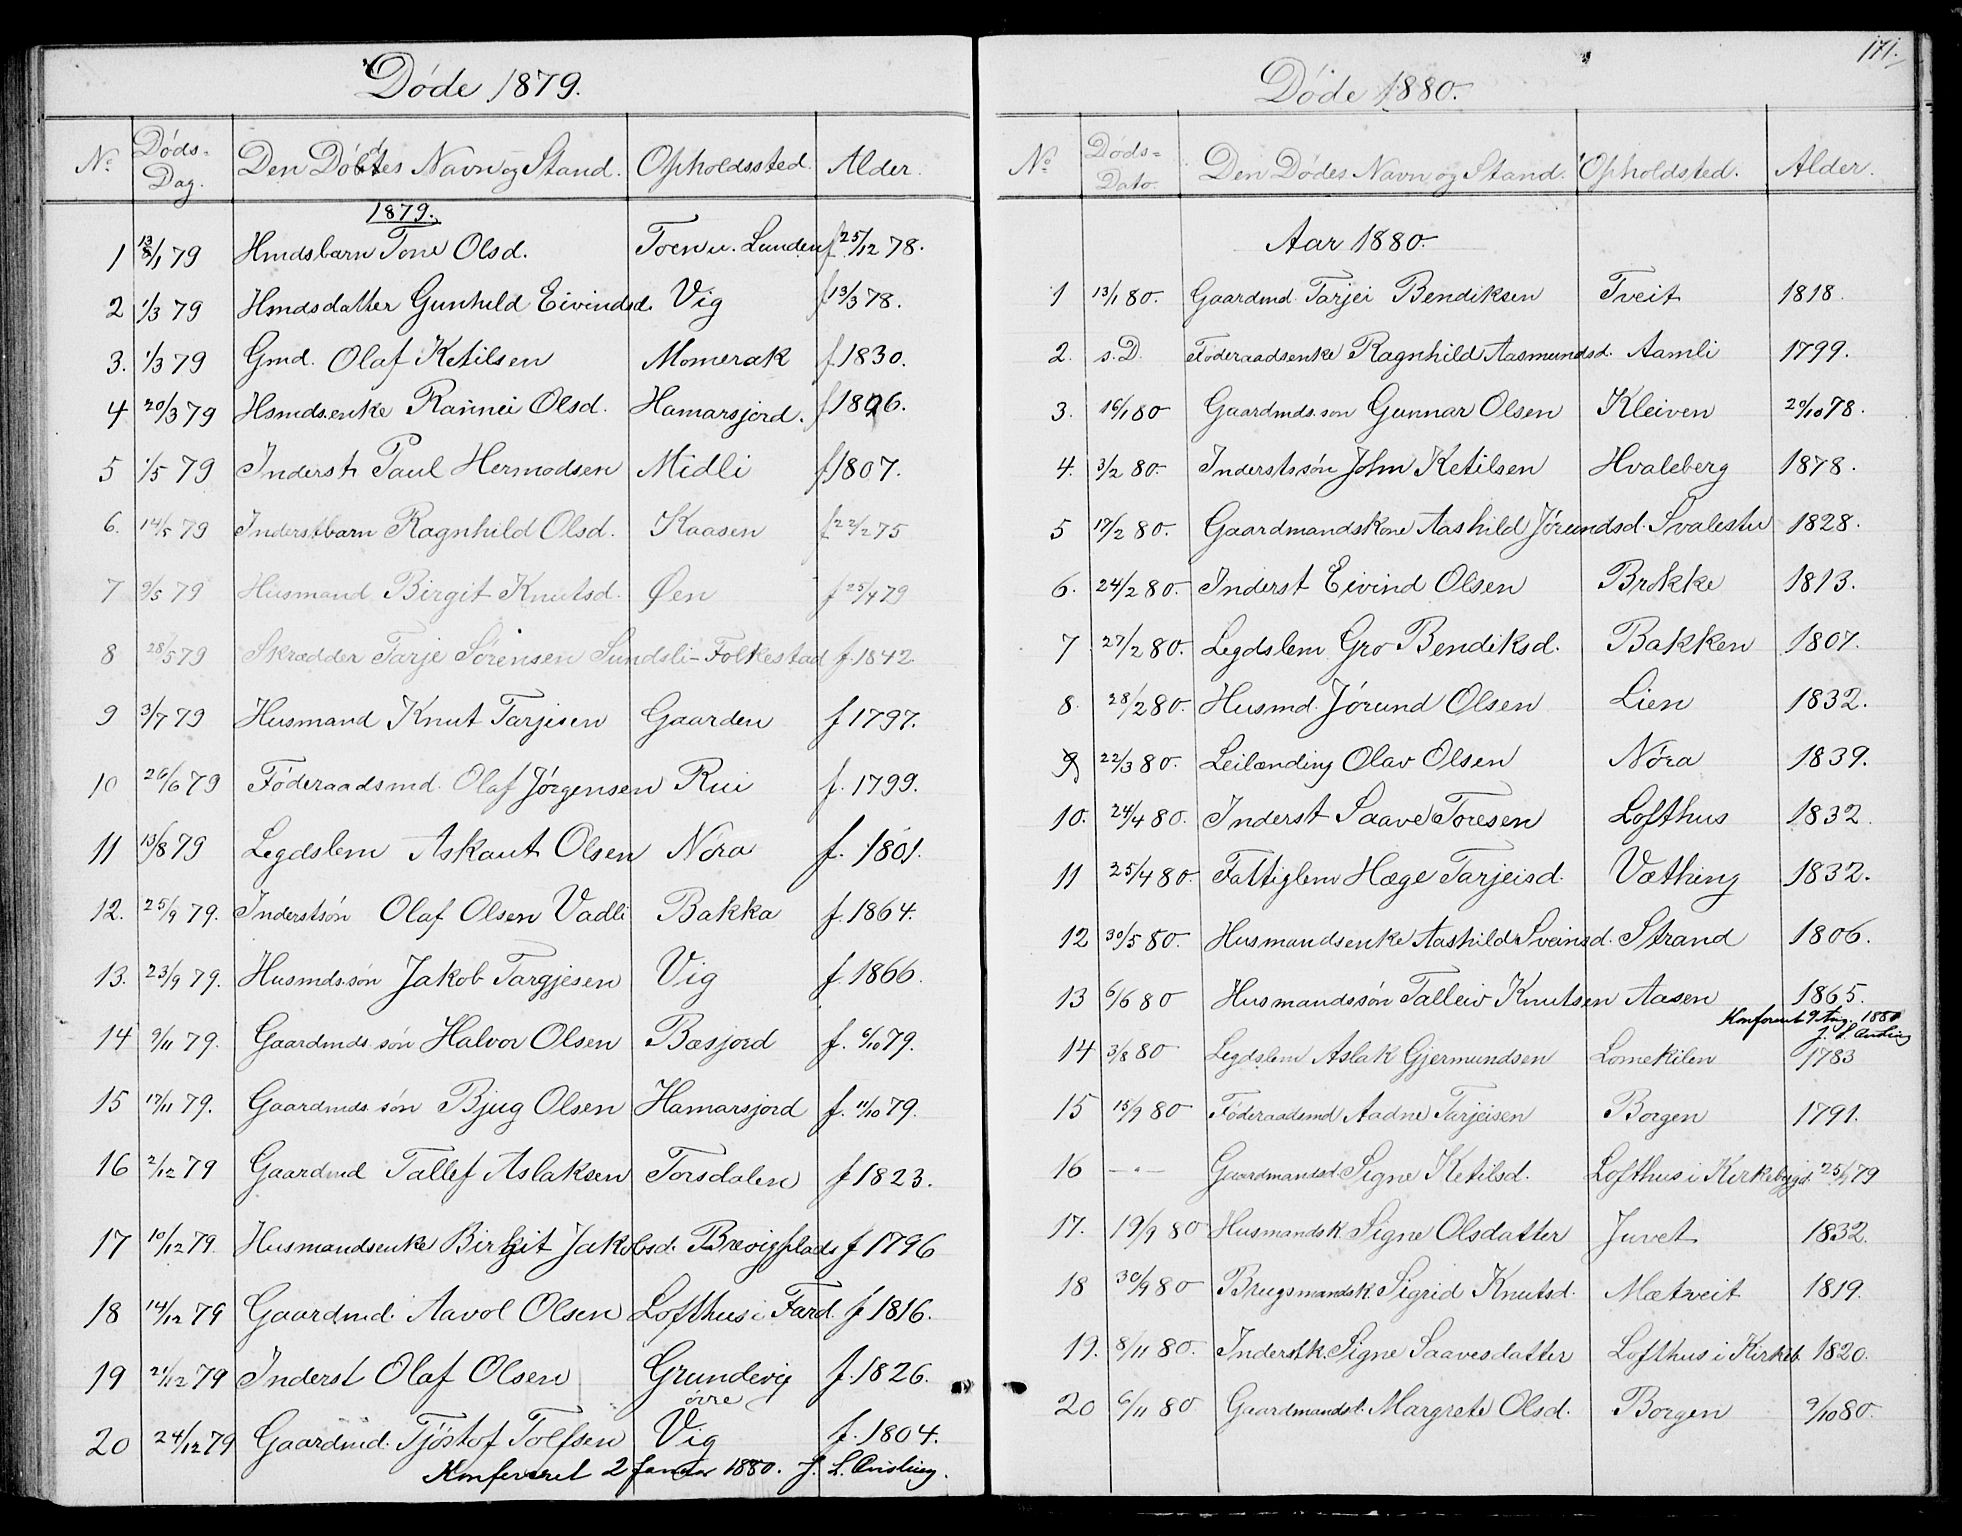 Døde 1879.
No. Døds-Dag. Den Dødes Navn og Stand. Opholdssted. Alder.
1879.
1 13/1 79 Hmdsbarn Tone Olsd. Toen u. Lunden f 25/12 78.
2 1/3 79 Hmdsdatter Gunhild Eivindsd. Vig f 13/3 78.
3. 1/3 79 Gmd. Olaf Ketilsen Momerak f 1830.
4 20/3 79 Hsmds.enke Rannei Olsd. Hamarsjord. f 1826.
5 1/5 79 Inderst Paul Hermodsen Midli f 1807.
6. 14/5 79 Inderstbarn Ragnhild Olsd. Kaasen f 22/2 75
7 9/5 79 Husmand Birgit Knutsd. Øen f 25/4 79
8 28/5 79 Skrædder Tarje Sørensen Sundsli-Folkestad f. 1842.
9 3/7 79 Husmand Knut Tarjesen Gaarden f 1797.
10 26/6 79 Föderaadsmd. Olaf Jörgensen Rui f. 1799.
11 13/8 79 Legdslem Askaut Olsen Nöra f. 1801.
12. 25/9 79. Inderstsön Olaf Olsen Vadli Bakka f. 1864.
13. 23/9 79. Husmds.søn Jakob Targjesen Vig f. 1866.
14 9/11 79. Gaardmds søn Halvor Olsen Bæsjord f. 6/10 79.
15 17/11 79. Gaardmds søn Bjug Olsen Hamarsjord f. 11/10 79.
16 2/12 79 Gaardmd Tallef Aslaksen Torsdalen f 1823.
17 10/12 79. Husmandsenke Birgit Jakobsd. Brævigplads f 1796
18 14/12 79 Gaardmd. Aavol Olsen Lofthus i Fard. f 1816.
19 21/12 79 Inderst Olaf Olsen Grundevig f. 1826.
øvre
20 24/12 79 Gaardmd. Tjöstof Tolfsen Vig f. 1804.
Konfereret 2 Januar 1880. J. L.
171.
Døde 1880.
No. Døds-Dato. Den Dødes Navn og Stand. Opholdsted. Alder.
Aar 1880.
1 13/1 80. Gaardmd. Tarjei Bendiksen Tveit 1818.
2. s. D. Föderaadsenke Ragnhild Aasmundsd. Aamli 1799.
3. 16/1 80 Gaardmds.søn Gunnar Olsen Kleiven 20/10 78.
4. 3/2 80. Inderstssøn John Ketilsen Hvaleberg 1878.
5 17/2 80. Gaardmandskone Aashild Jörundsd. Svalestu 1828.
6. 24/2 80. Inderst Eivind Olsen Brokke 1813.
7 27/2 80. Legdslem Gro Bendiksd. Bakken 1807.
8. 28/2 80. Husmd. Jörund Olsen Lien 1832.
9 22/3 80. Leilænding Olav Olsen Nöra 1839.
10. 24/4 80. Inderst Saave Toresen Lofthus 1832
11 25/4 80. Fattiglem Hæge Tarjeisd. Væthing 1832.
12 30/5 80. Husmandsenke Aashild Sveinsd. Strand 1806.
13 6/6 80 Husmandssøn Talleiv Knutsen Aasen 1865.
Konfereret 9 Aug. 1880
J. L.
14 3/8 80 Legdslem Aslak Gjermundsen Lomekilen 1783
15 15/9 80 Föderaadsmd Aadne Tarjeisen Borgen 1791.
16 — " — Gaardmandsd. Signe Ketilsd. Lofthus i Kirkebygd. 25/1 79
17. 19/9 80 Husmandsk. Signe Olsdatter Juvet 1832.
18 30/9 80 Brugsmandsk. Sigrid Knutsd. Mætveit 1819.
19. 8/11 80. Inderstk. Signe Saavesdatter Lofthus i Kirkeb. 1820.
20 6/11 80 Gaardmandsd. Margrete Olsd. Borgen 9/10 80.